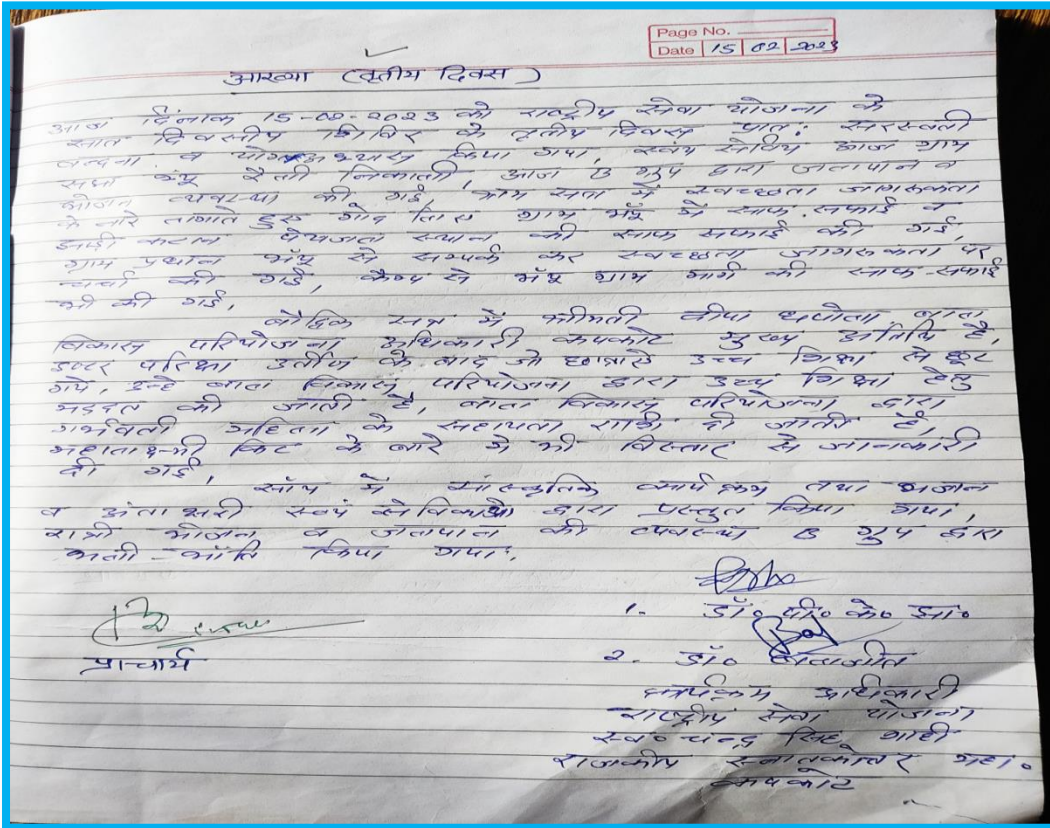 Page No.
Date 15 02 2023
आख्या (तृतीय दिवस)
आज दिनांक 15-02-2023 को राष्ट्रीय सेवा योजना के
सात दिवसीय शिविर के तृतीय दिवस प्रात: सरस्वती
वन्दना व योग अभ्यास किया गया, स्वंय सेवियों द्वारा ग्राम
सभा भंयू रैली निकाली, आज B ग्रुप द्वारा जलपान व
भोजन व्यवस्था की गई, ग्राम सभा में स्वच्छता जागरुकता
के नारे लगाते हुए गोद लिए ग्राम भंयू में साफ. सफाई व
झाड़ी कटान पेयजल स्थान की साफ सफाई की गई,
ग्राम प्रधान भंयू से सम्पर्क कर स्वच्छता जागरुकता पर
चर्चा की गई, कैम्प से भंयू ग्राम मार्ग की साफ-सफाई
भी की गई,
बौद्धिक सत्र में श्रीमती बाल
विकास परियोजना अधिकारी कपकोट मुख्य अतिथि है,
इण्टर परिक्षा उर्तीण के बाद जो छात्राऐं उच्च शिक्षा से छूट
गये, उन्हे बाल विकास परियोजना द्वारा उच्च शिक्षा हेतु
मद्दत की जाती है, बाल विकास परियोजना द्वारा
गर्भवती महिला के सहायता राशि दी जाती है,
महालक्ष्मी किट के बारे में भी विस्तार से जानकारी
दी गई,
सॉय में सांस्कृतिक कार्यक्रम तथा भजन
व अंताक्षरी स्वयं सेविकाओं द्वारा प्रस्तुत किया गया,
रात्री भोजन व जलपान की व्यवस्था B ग्रुप द्वारा
भली-भाँति किया गया.
1. डॉ० पी० के०
2. डॉ०
प्राचार्य
कार्यक्रम अधिकारी
राष्ट्रीय सेवा योजना
स्व० चन्द्र सिंह शाही
राजकीय स्नातकोत्तर महा०
कपकोट